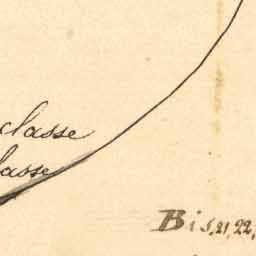 classe
lasse
Bis,21,22,